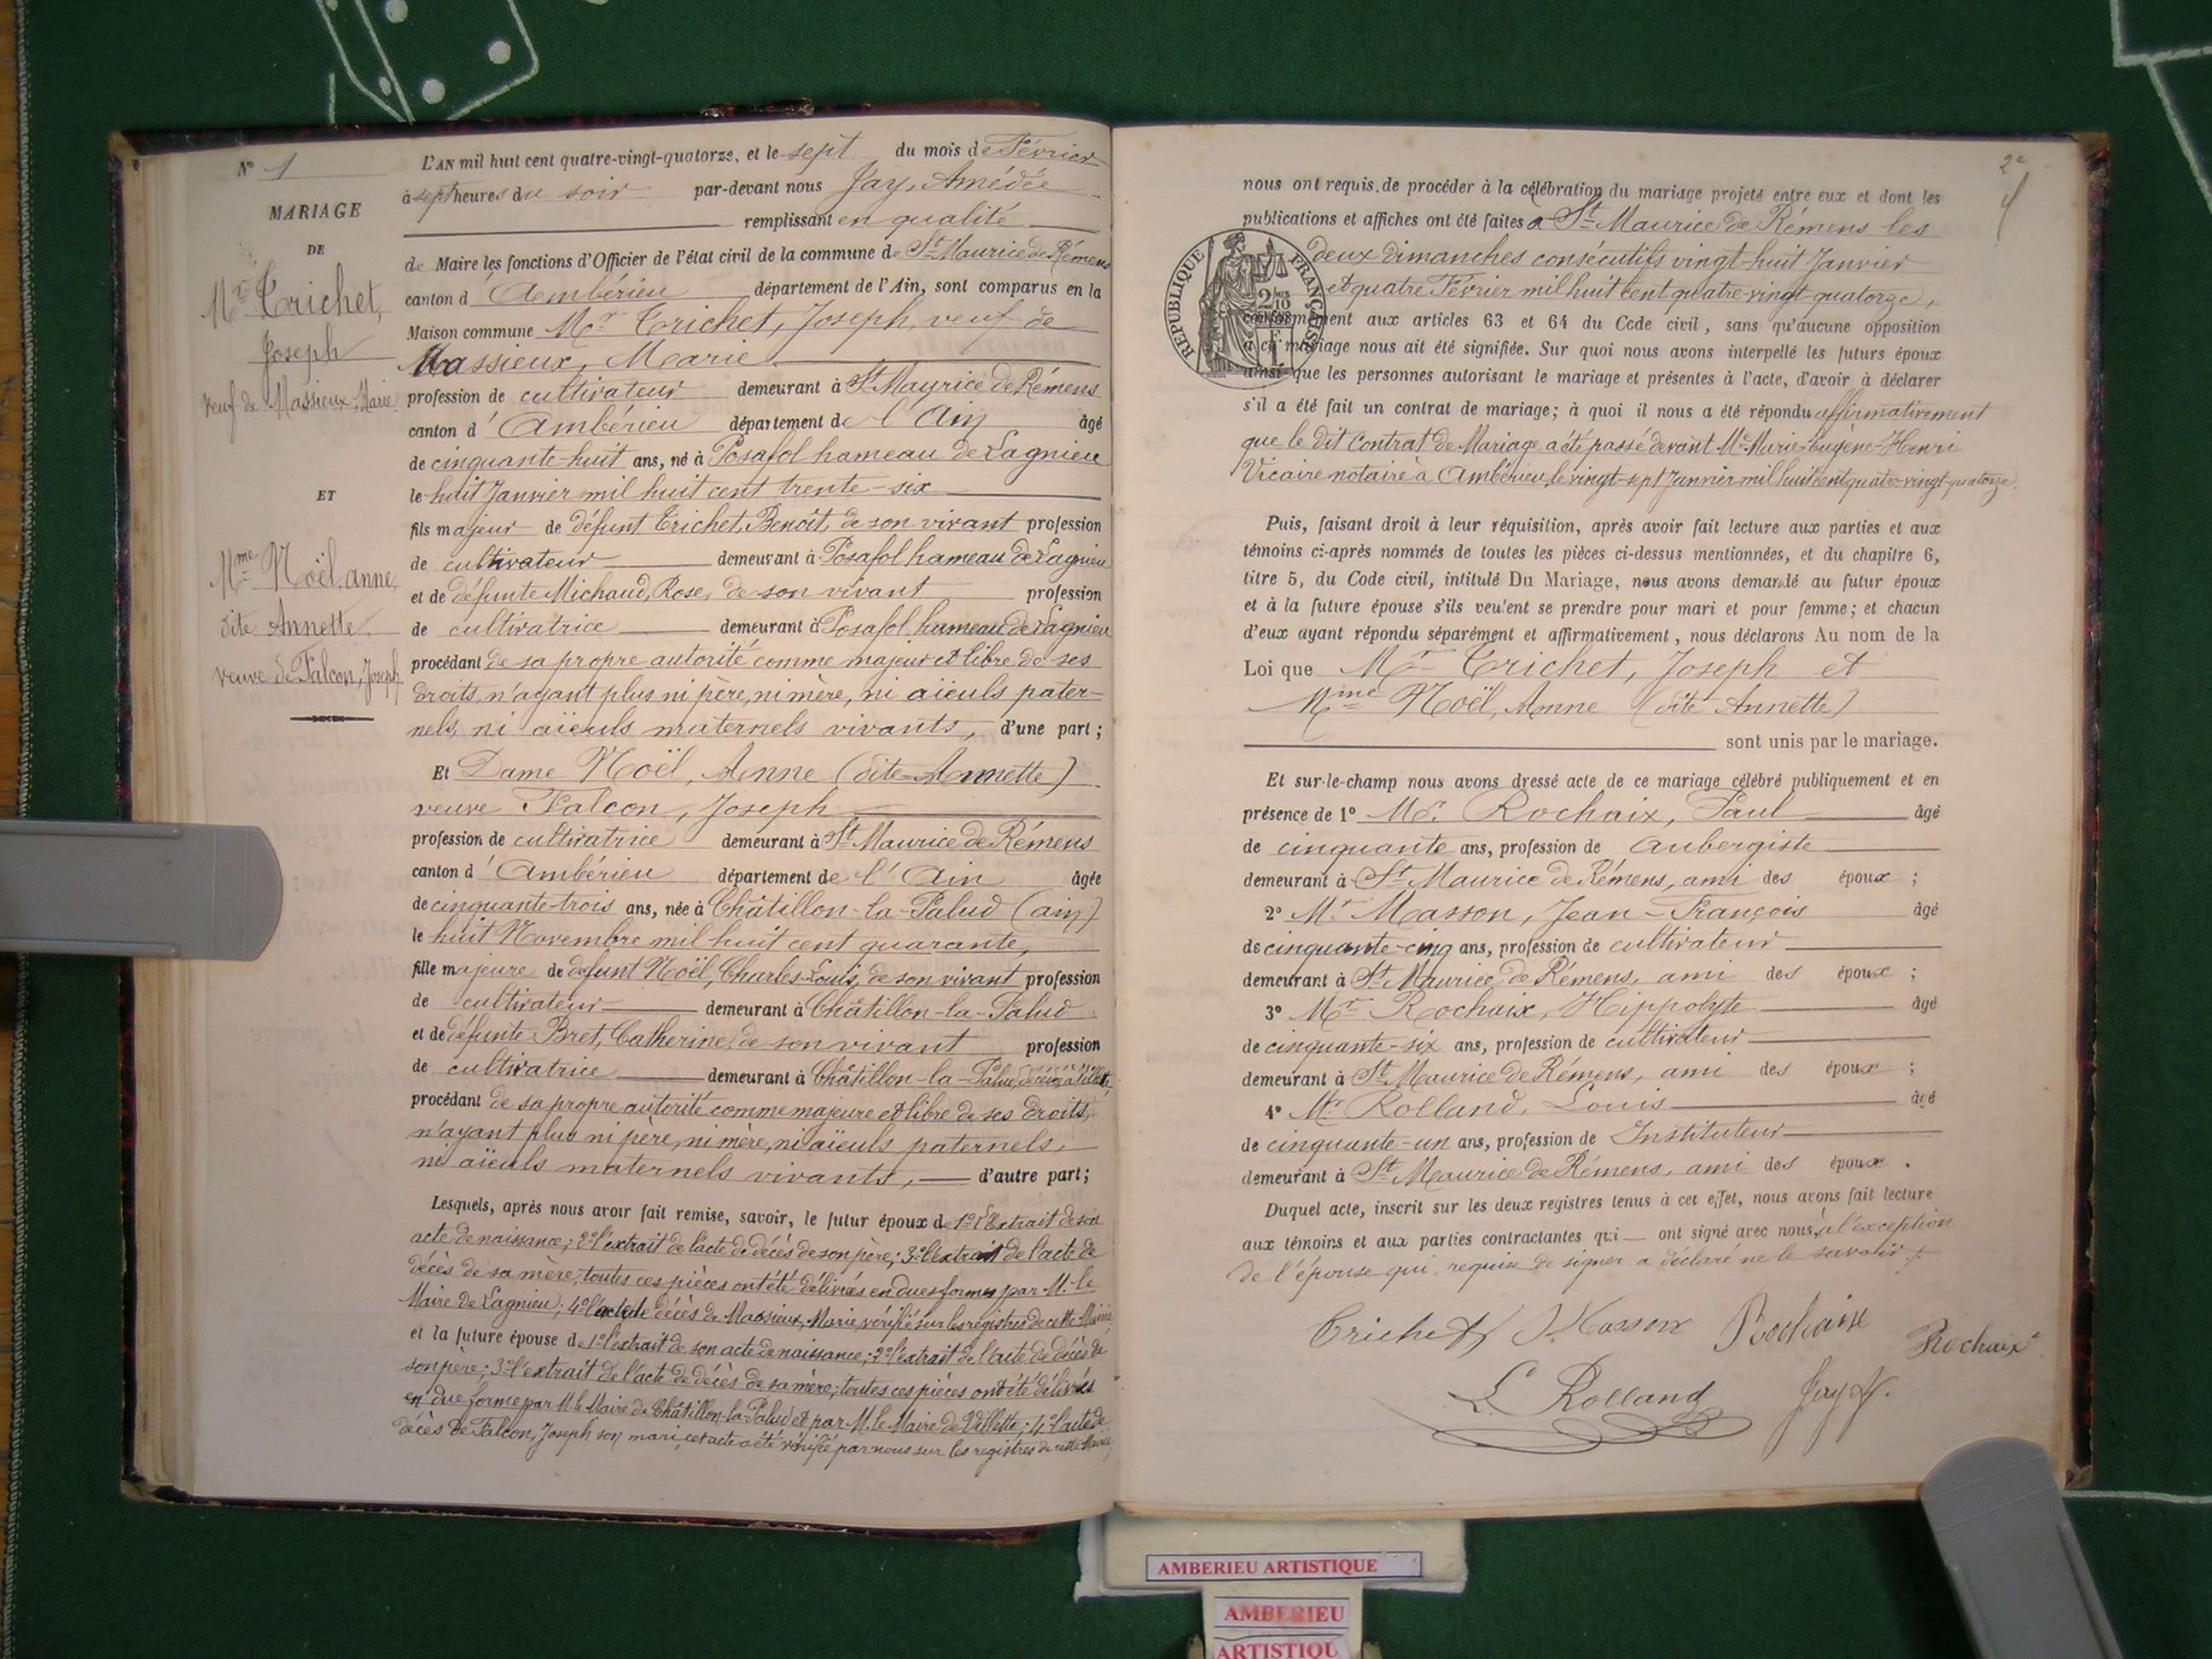 N° 1
MARIAGE
DE
Mr Trichet,
Joseph
veuf de Massieux, Marie
ET
Mme Noël, Anne
dite Annette
veuve de Falcon, Joseph
L'AN mil huit cent quatre-vingt-quatorze, et le sept du mois de Février
à sept heures du soir par-devant nous Jay, Amédée
remplissant en qualité
de Maire les fonctions d'Officier de l'état civil de la commune de St Maurice de Rémens
canton d'Ambérieu département de l'Ain, sont comparus en la
Maison commune Mr Trichet, Joseph, veuf de
Massieux, Marie
profession de cultivateur demeurant à St Maurice de Rémens
canton d'Ambérieu département de l'Ain âgé
de cinquante-huit ans, né à Posafol hameau de Lagnieu
le huit Janvier mil huit cent trente-six
fils majeur de défunt Trichet, Benoît, de son vivant profession
de cultivateur demeurant à Posafol hameau de Lagnieu
et de défunte Michaud, Rose, de son vivant profession
de cultivatrice demeurant à Posafol, hameau de Lagnieu
procédant de sa propre autorité comme majeur et libre de ses
droits, n'ayant plus ni père, ni mère, ni aïeuls pater-
nels, ni aïeuls maternels vivants, d'une part;
Et Dame Noël, Anne (dite Annette)
veuve Falcon, Joseph
profession de cultivatrice demeurant à St Maurice de Rémens
canton d'Ambérieu département de l'Ain âgée
de cinquante-trois ans, née à Châtillon-la-Palud (ain)
le huit Novembre mil huit cent quarante,
fille majeure de défunt Noël, Charles-Louis, de son vivant profession
de cultivateur demeurant à Châtillon-la-Palud
et de défunte Bret, Catherine, de son vivant profession
de cultivatrice demeurant à Châtillon-la-Palud, décédée à Villette,
procédant de sa propre autorité comme majeure et libre de ses droits,
n'ayant plus ni père, ni mère, ni aïeuls paternels,
ni aïeuls maternels vivants, d'autre part;
Lesquels, après nous avoir fait remise, savoir, le futur époux de 1° l'Extrait de son
acte de naissance; 2° l'extrait de l'acte de décès de son père; 3° l'extrait de l'acte de
décès de sa mère, toutes ces pièces ont été délivrées en dues formes par M. le
Maire de Lagnieu; 4° l'acte de décès de Massieux, Marie, vérifié sur les registres de cette Mairie
et la future épouse de 1° l'extrait de son acte de naissance; 2° l'extrait de l'acte de décès de
son père; 3° l'extrait de l'acte de décès de sa mère; toutes ces pièces ont été délivrées
en due forme par M. le Maire de Châtillon-la-Palud et par M. le Maire de Villette; 4° l'acte de
décès de Falcon, Joseph son mari, cet acte a été vérifié par nous sur les registres de cette Mairie,
2e
nous ont requis de procéder à la célébration du mariage projeté entre eux et dont les
publications et affiches ont été faites à St Maurice de Rémens les
deux dimanches consécutifs vingt-huit Janvier
et quatre Février mil huit cent quatre-vingt-quatorze,
RÉPUBLIQUE FRANÇAISE
conformément aux articles 63 et 64 du Code civil, sans qu'aucune opposition
à ce mariage nous ait été signifiée. Sur quoi nous avons interpellé les futurs époux
ainsi que les personnes autorisant le mariage et présentes à l'acte, d'avoir à déclarer
s'il a été fait un contrat de mariage; à quoi il nous a été répondu affirmativement
que le dit Contrat de Mariage a été passé devant Me Marie-Eugène-Henri
Vicaire notaire à Ambérieu, le vingt-sept Janvier mil huit cent quatre-vingt-quatorze.
Puis, faisant droit à leur réquisition, après avoir fait lecture aux parties et aux
témoins ci-après nommés de toutes les pièces ci-dessus mentionnées, et du chapitre 6,
titre 5, du Code civil, intitulé Du Mariage, nous avons demandé au futur époux
et à la future épouse s'ils veulent se prendre pour mari et pour femme; et chacun
d'eux ayant répondu séparément et affirmativement, nous déclarons Au nom de la
Loi que Mr Trichet, Joseph et
Mme Noël, Anne (dite Annette)
sont unis par le mariage.
Et sur-le-champ nous avons dressé acte de ce mariage célébré publiquement et en
présence de 1° Mr. Rochaix, Paul âgé
de cinquante ans, profession de Aubergiste
demeurant à St Maurice de Rémens, ami des époux;
2° Mr Masson, Jean-François âgé
de cinquante-cinq ans, profession de cultivateur
demeurant à St Maurice de Rémens, ami des époux;
3° Mr Rochaix, Hippolyte âgé
de cinquante-six ans, profession de cultivateur
demeurant à St Maurice de Rémens, ami des époux;
4° Mr Rolland, Louis âgé
de cinquante-un ans, profession de Instituteur
demeurant à St Maurice de Rémens, ami des époux.
Duquel acte, inscrit sur les deux registres tenus à cet effet, nous avons fait lecture
aux témoins et aux parties contractantes qui ont signé avec nous, à l'exception
de l'épouse qui, requise de signer a déclaré ne le savoir.
Trichet J. Masson Rochaix Rochaix
L. Rolland Jay A.
AMBERIEU ARTISTIQUE
AMBERIEU
ARTISTIQU